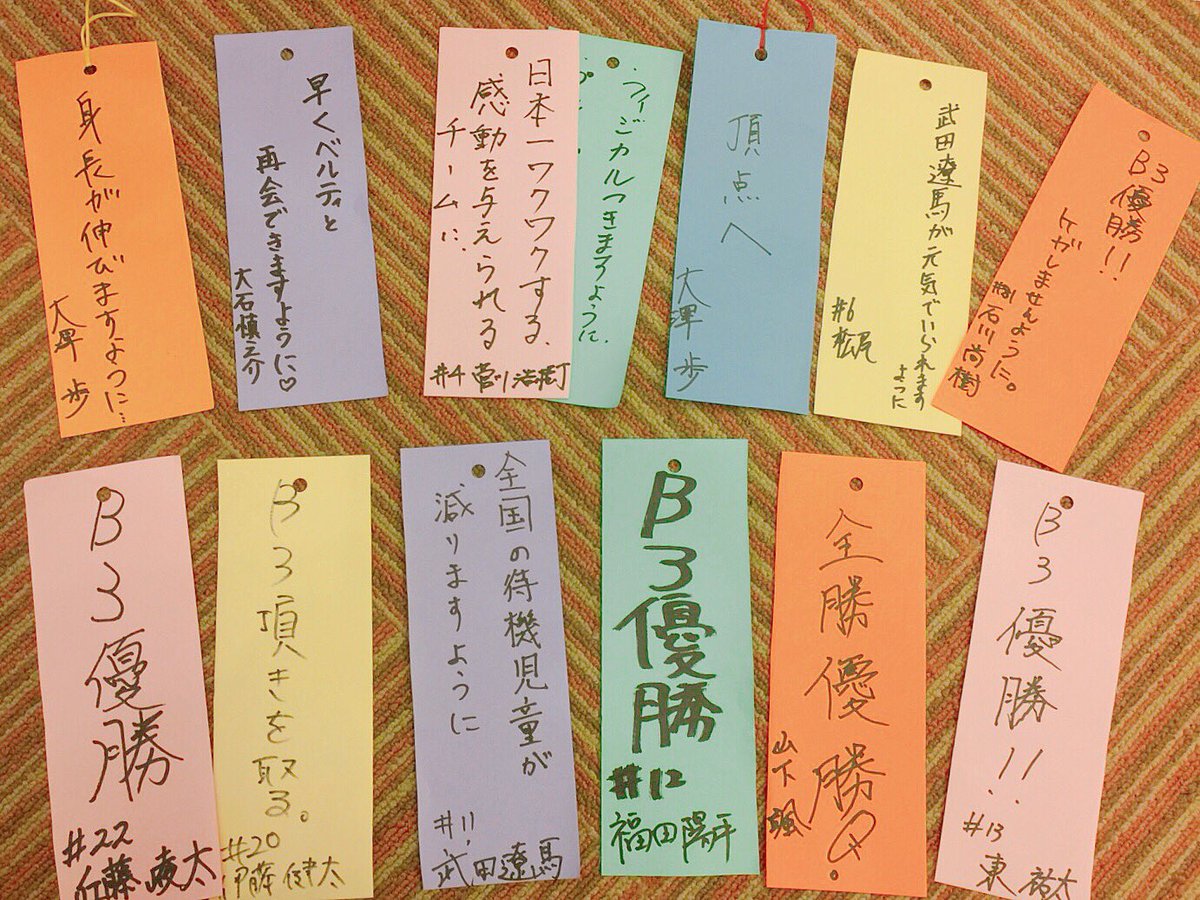 身長が伸びますように…
大澤 歩
早くベルティと
再会できますように♡
大石慎之介
日本一ワクワクする、
感動を与えられる
チームに、
#4
フィジカルつきますように.
頂点へ
大澤 歩
武田遼馬が元気でいられます
ように
#6
松尾
B3
優勝!!
ケガしませんように。
石川尚樹
B3優勝
#22
佐藤
B3頂きを取る。
#20
伊藤 健太
全国の待機児童が
減りますように
#11.
武田遼馬
B3優勝
#12
福田陽平
全勝優勝
山下 颯
B3優勝!!
#13
東 祐太